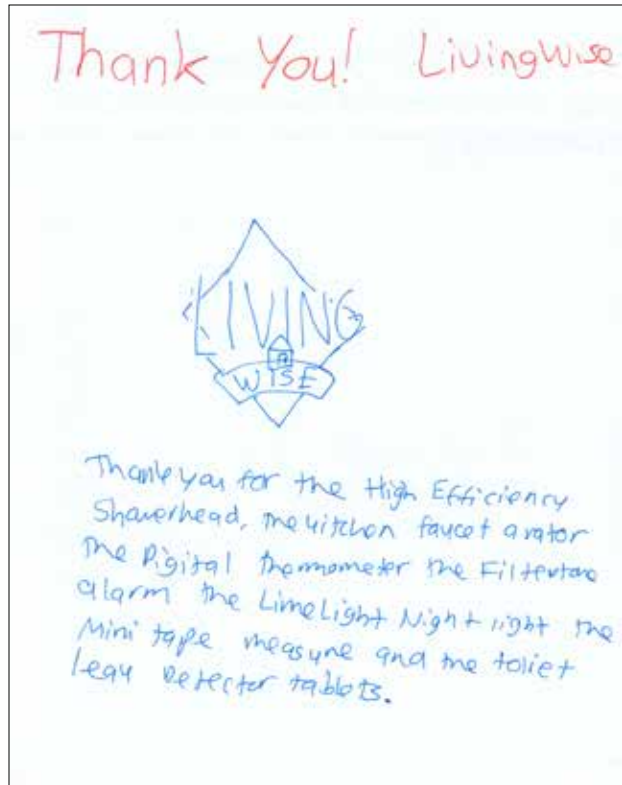 Thank You! LivingWise
LIVING
WISE
Thank you for the High Efficiency
Showerhead, the kitchen faucet arator
the Digital thermometer the Filtertone
alarm the LimeLight Night light the
Mini tape measure and the toliet
leak Detector tablets.